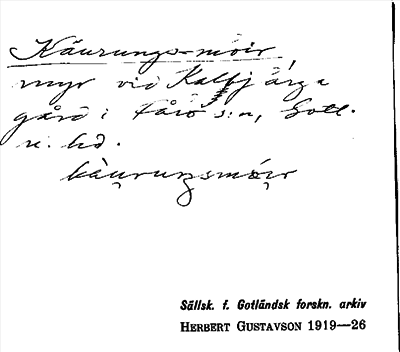 Käurungs-moir,
myr vid Kalbjärga
gård i Fårö s:n, Gotl.
n. hd.
kàu̯ruŋsmói̯r
Sällsk. f. Gotländsk forskn. arkiv
HERBERT GUSTAVSON 1919—26